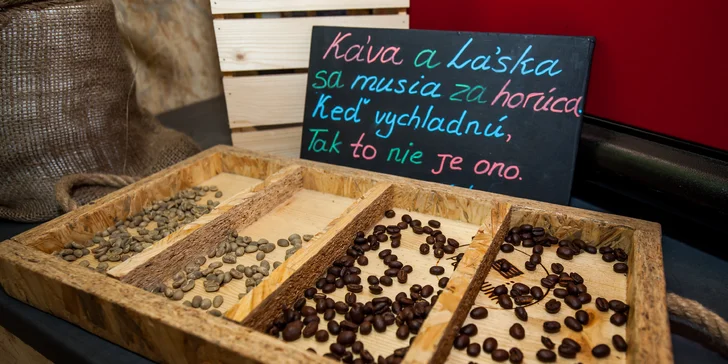 Káva a Láska
sa musia za horúca.
Keď vychladnú,
Tak to nie je ono.